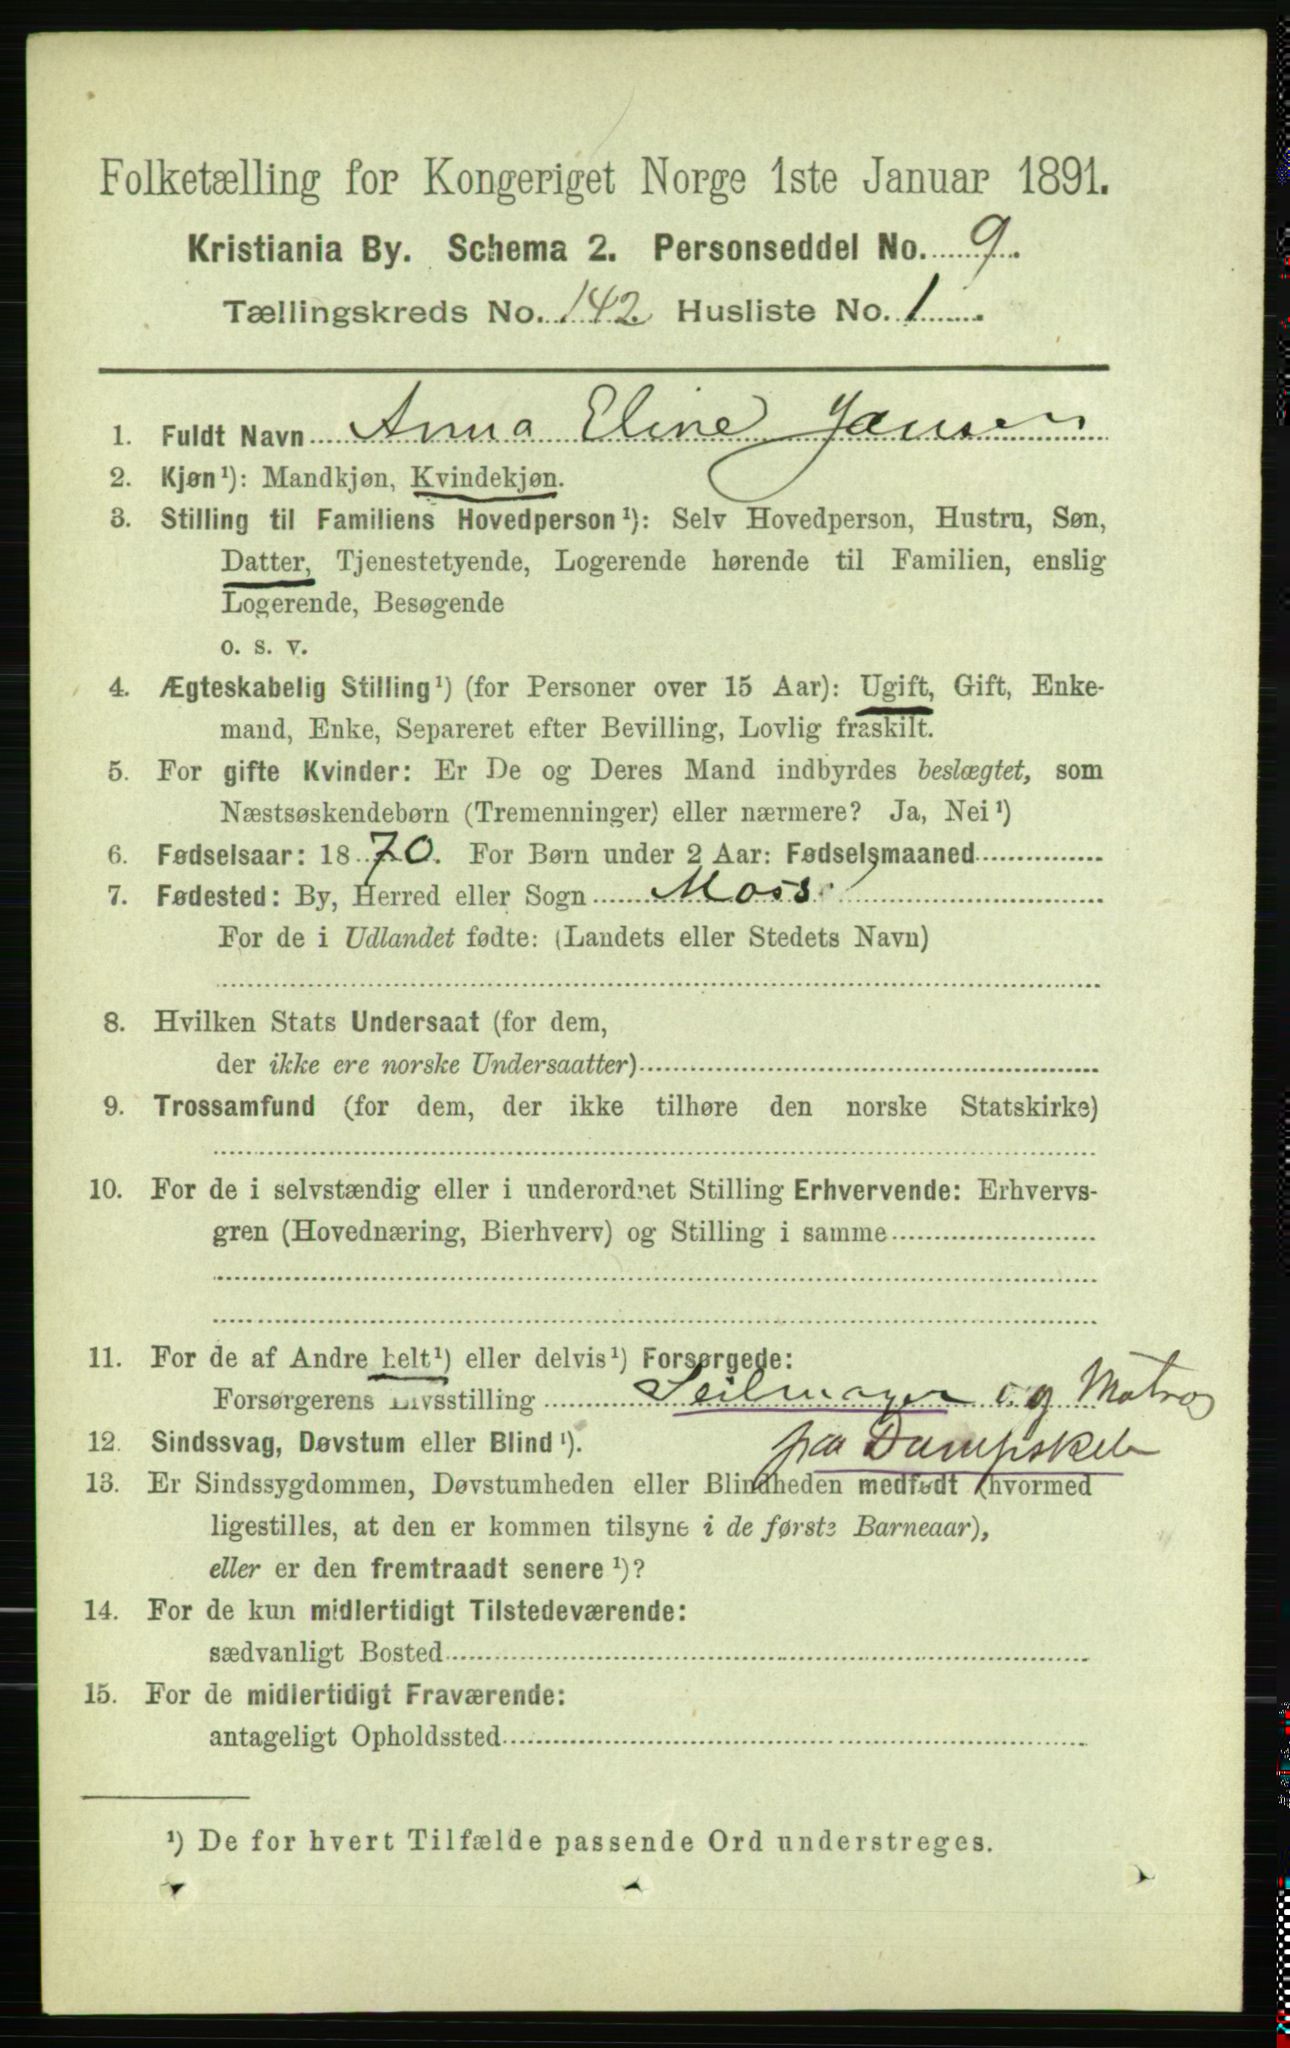 Folketælling for Kongeriget Norge 1ste Januar 1891.
Kristiania By. Schema 2. Personseddel No. 9.
Tællingskreds No. 142 Husliste No. 1
1. Fuldt Navn Anna Eline Jansen
2. Kjøn¹): Mandkjøn, Kvindekjøn.
3. Stilling til Familiens Hovedperson¹): Selv Hovedperson, Hustru, Søn,
Datter, Tjenestetyende, Logerende hørende til Familien, enslig
Logerende, Besøgende
o. s. v.
4. Ægteskabelig Stilling¹) (for Personer over 15 Aar): Ugift, Gift, Enke-
mand, Enke, Separeret efter Bevilling, Lovlig fraskilt.
5. For gifte Kvinder: Er De og Deres Mand indbyrdes beslægtet, som
Næstsøskendebørn (Tremenninger) eller nærmere? Ja, Nei¹)
6. Fødselsaar: 1870. For Børn under 2 Aar: Fødselsmaaned
7. Fødested: By, Herred eller Sogn Moss
For de i Udlandet fødte: (Landets eller Stedets Navn)
8. Hvilken Stats Undersaat (for dem,
der ikke ere norske Undersaatter)
9. Trossamfund (for dem, der ikke tilhøre den norske Statskirke)
10. For de i selvstændig eller i underordnet Stilling Erhvervende: Erhvervs-
gren (Hovednæring, Bierhverv) og Stilling i samme
11. For de af Andre helt¹) eller delvis¹) Forsørgede:
Forsørgerens Livsstilling Seilmager og Matros
12. Sindssvag, Døvstum eller Blind¹). paa Dampskib
13. Er Sindssygdommen, Døvstumheden eller Blindheden medfødt (hvormed
ligestilles, at den er kommen tilsyne i de første Barneaar),
eller er den fremtraadt senere¹)?
14. For de kun midlertidigt Tilstedeværende:
sædvanligt Bosted
15. For de midlertidigt Fraværende:
antageligt Opholdssted
¹) De for hvert Tilfælde passende Ord understreges.